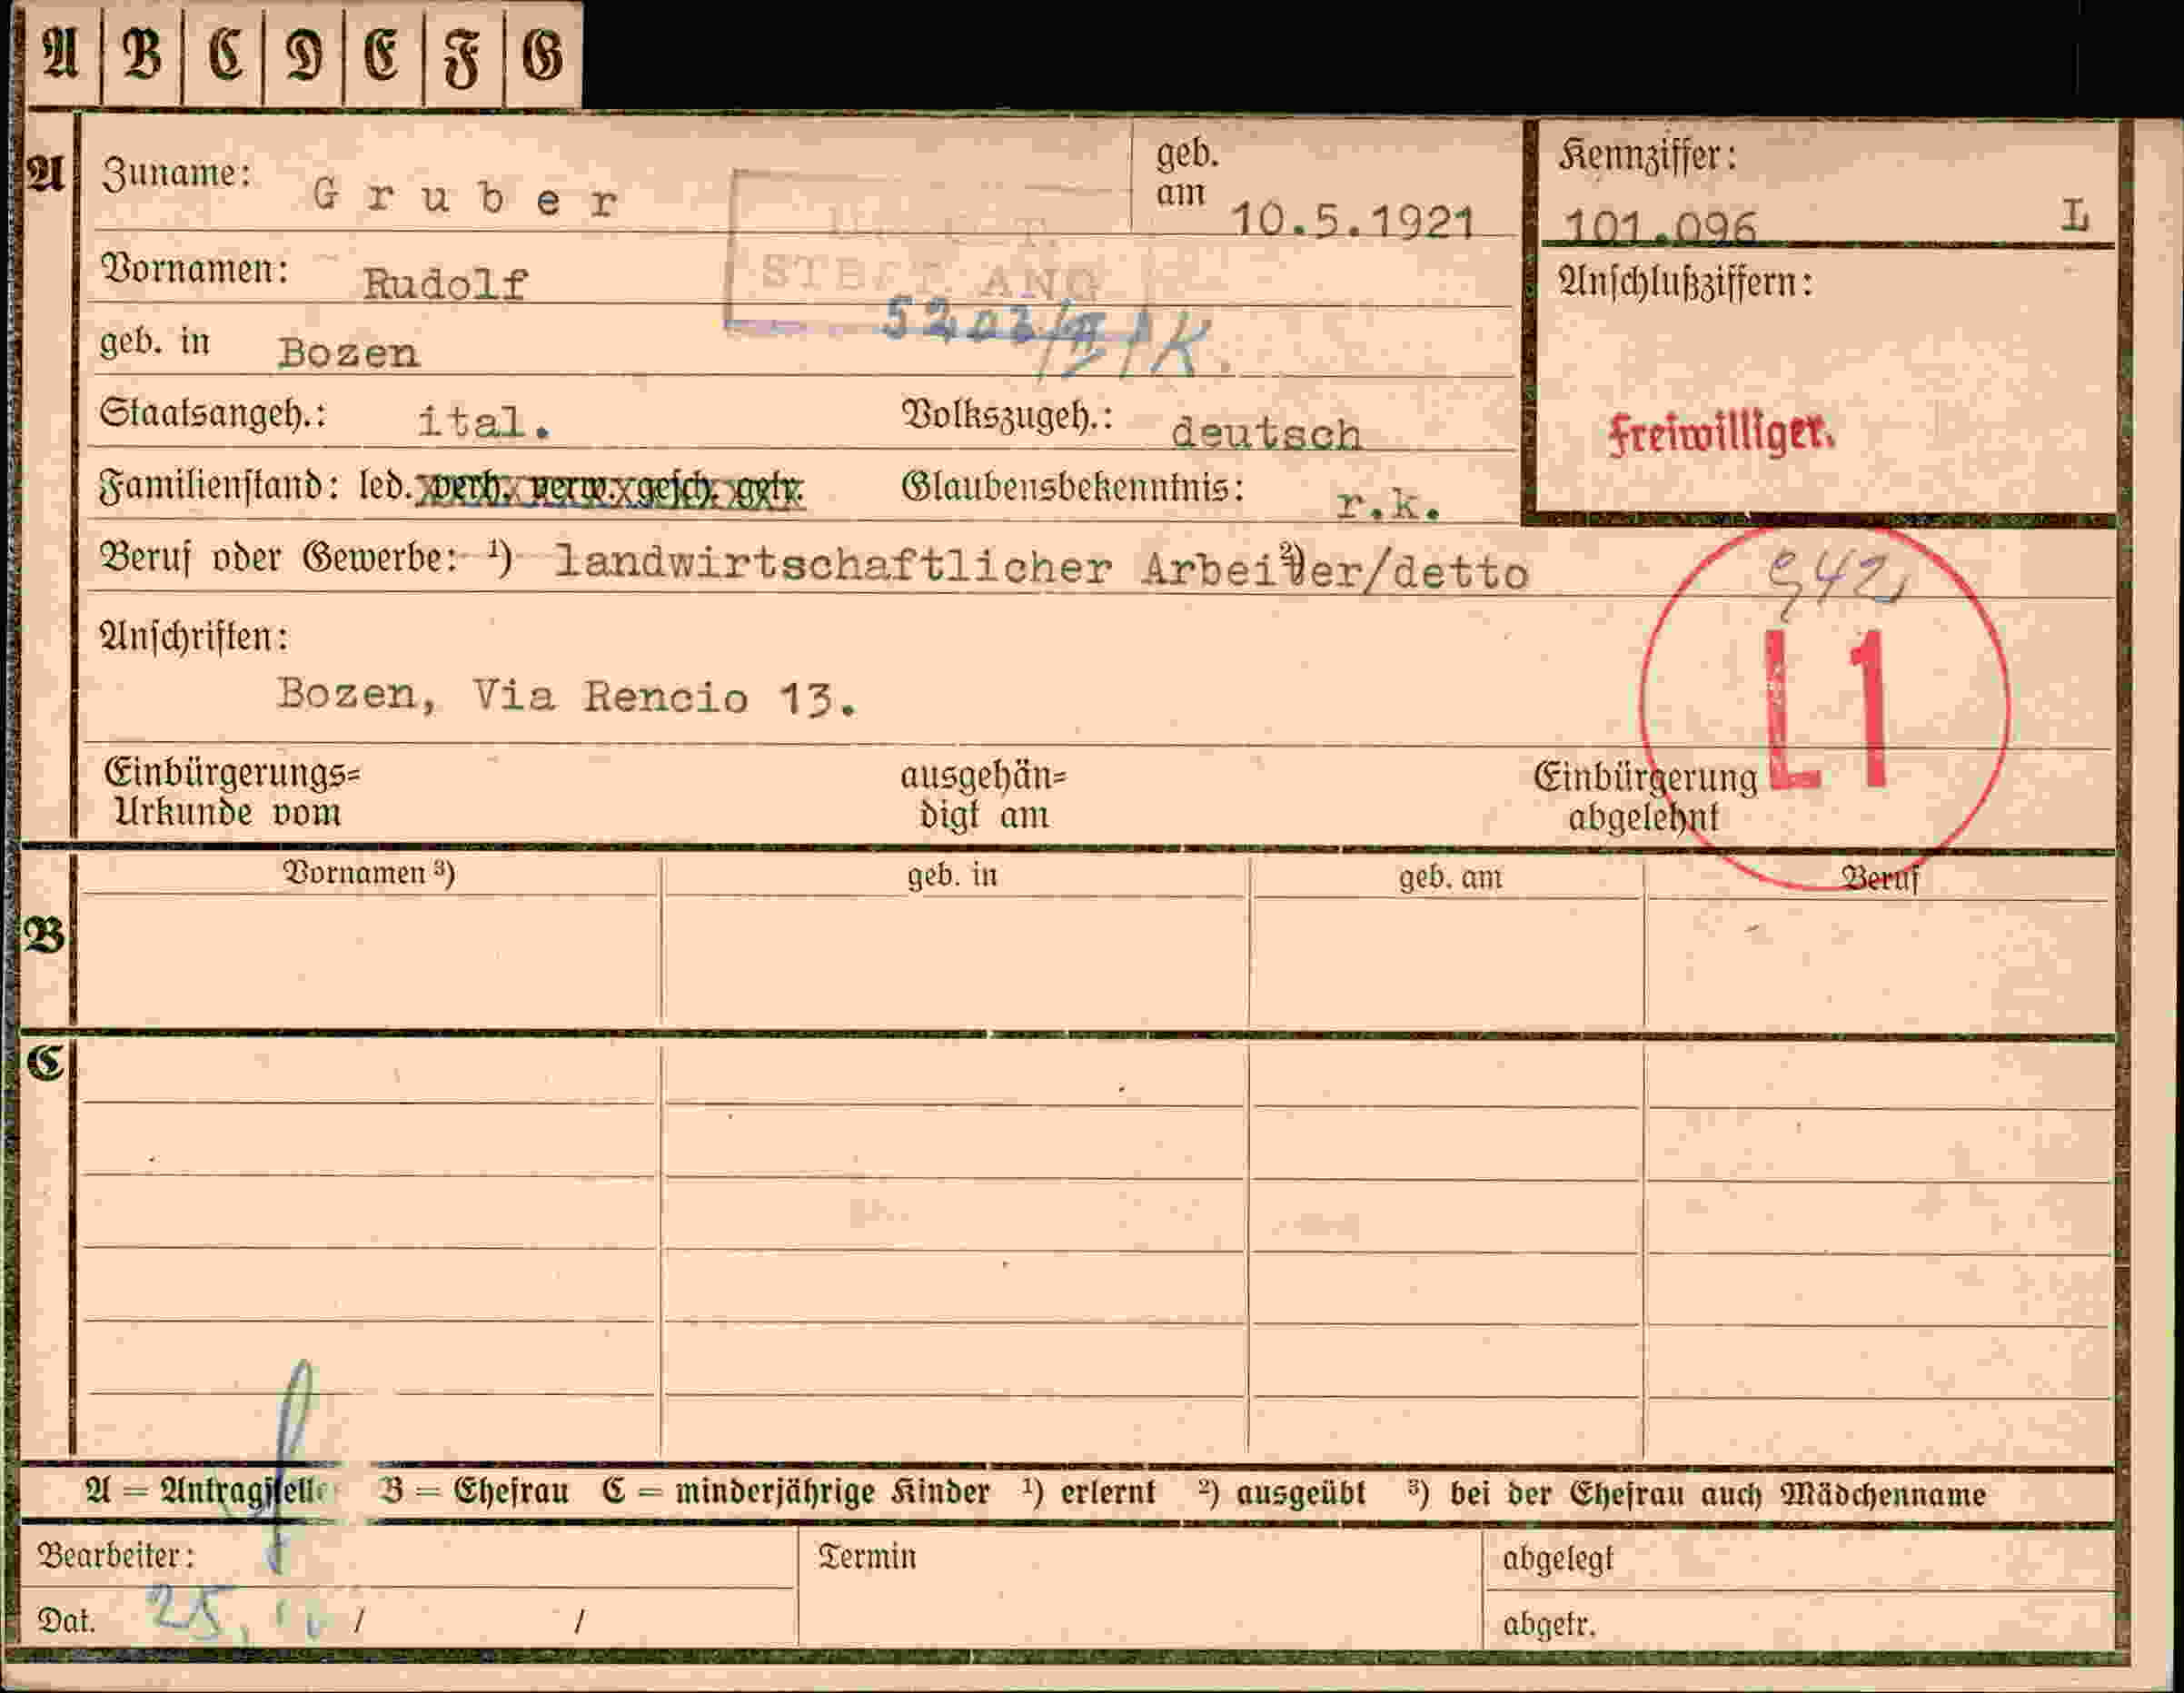 A B C D E F G
A Zuname: Gruber geb. am 10.5.1921
Kennziffer:
101.096 L
Vornamen: Rudolf
Anschlußziffern:
geb. in Bozen
Staatsangeh.: ital. Volkszugeh.: deutsch
Freiwilliger.
Familienstand: led. verh. verw. gesch. getr. Glaubensbekenntnis: r.k.
Beruf oder Gewerbe: ¹) landwirtschaftlicher Arbeiter/detto ²)
Anschriften:
L1
Bozen, Via Rencio 13.
Einbürgerungs= ausgehän= Einbürgerung
Urkunde vom digt am abgelehnt
Vornamen ³) geb. in geb. am Beruf
B
C
A = Antragstelle B = Ehefrau C = minderjährige Kinder ¹) erlernt ²) ausgeübt ³) bei der Ehefrau auch Mädchenname
Bearbeiter: Termin abgelegt
Dat. 25. / / abgetr.